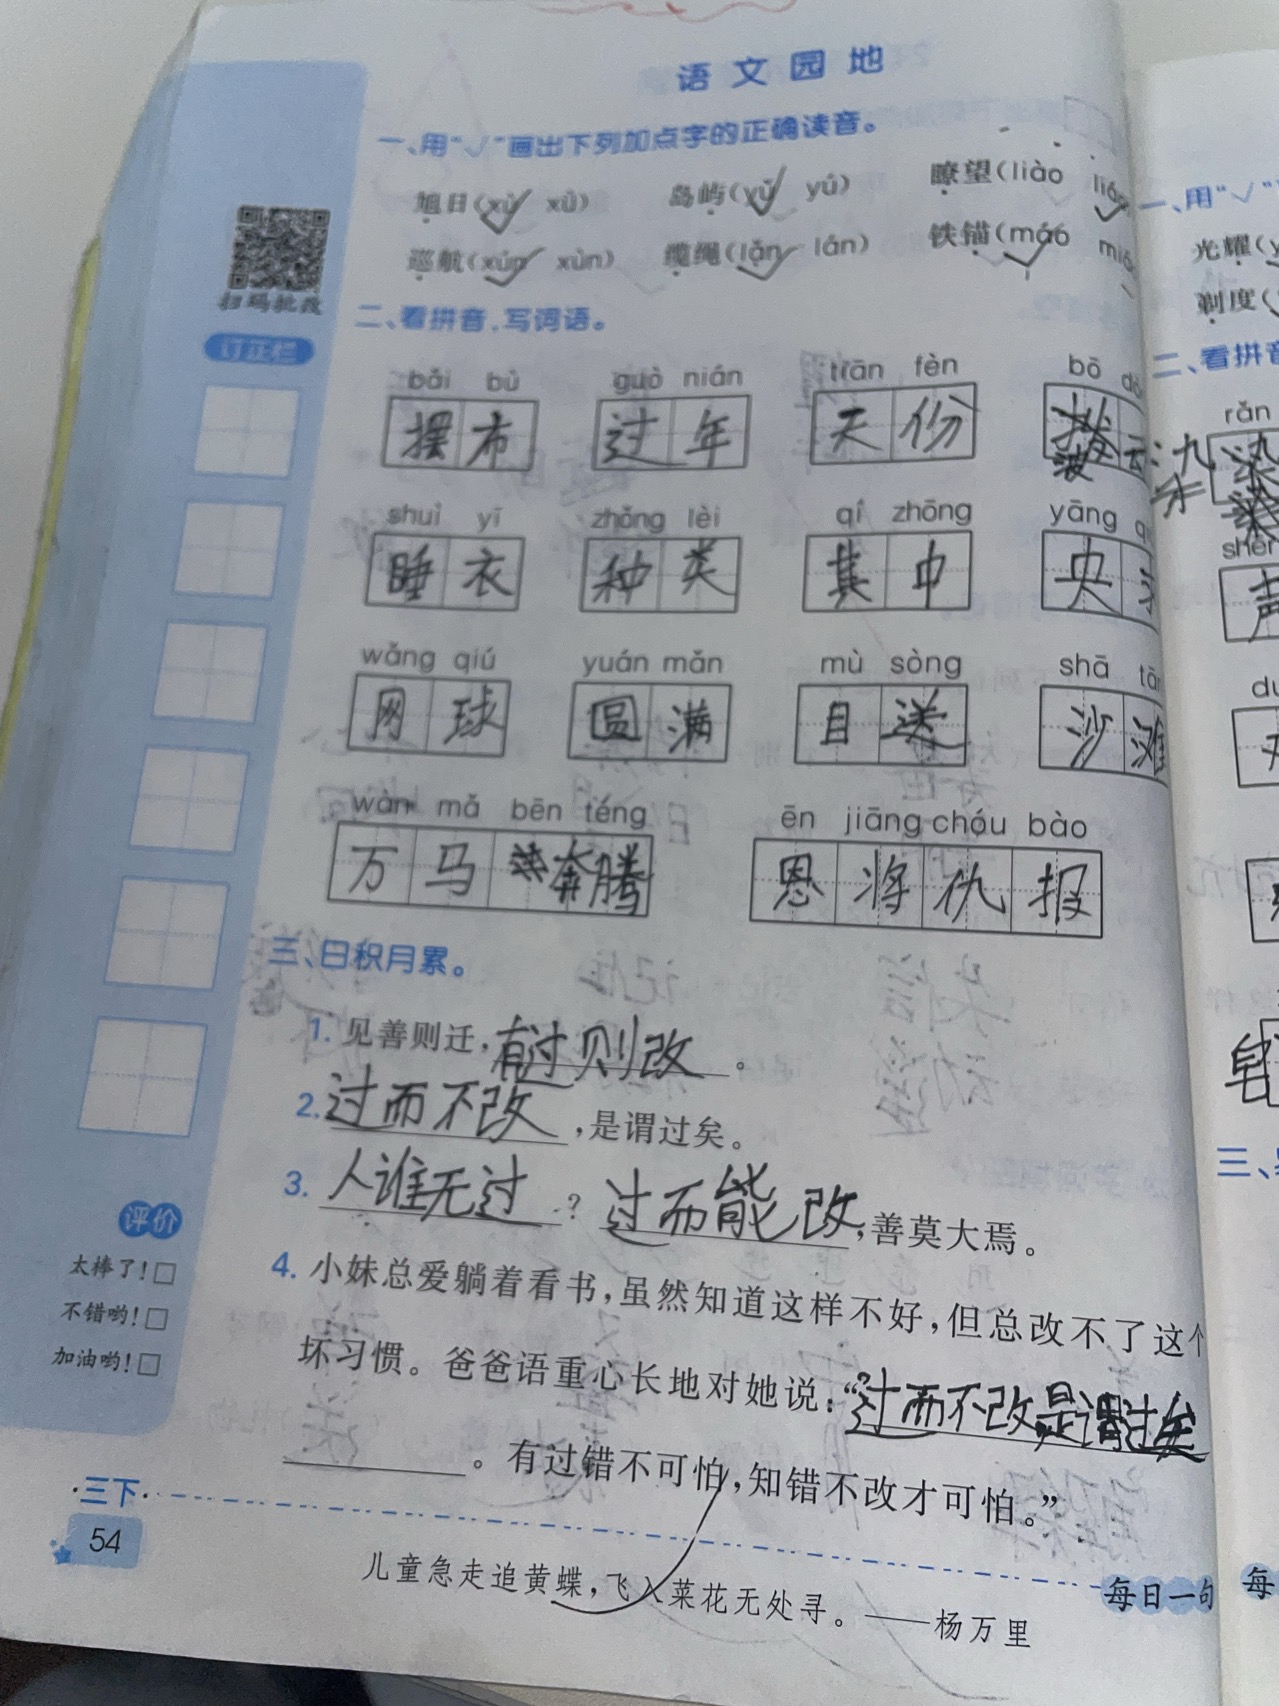 语文园地
一、用“√”画出下列加点字的正确读音。
旭日(xù xǜ) 岛屿(yǔ yú) 瞭望(liào
巡航(xún xùn) 缆绳(lǎn lán) 铁锚(máo
扫码批改
二、看拼音,写词语。
订正栏
bǎi bù guò nián tiān fèn bō
摆布 过年 天份
shuì yī zhǒng lèi qí zhōng yāng
睡衣 种类 其中 央
wǎng qiú yuán mǎn mù sòng shā
网球 圆满 目送 沙滩
wàn mǎ bēn téng ēn jiāng chóu bào
万马奔腾 恩将仇报
三、日积月累。
1. 见善则迁,有过则改。
2. 过而不改,是谓过矣。
3. 人谁无过?过而能改,善莫大焉。
4. 小妹总爱躺着看书,虽然知道这样不好,但总改不了这个
坏习惯。爸爸语重心长地对她说:“过而不改是谓过矣
。有过错不可怕,知错不改才可怕。”
评价
太棒了!□
不错哟!□
加油哟!□
·三下·
54
儿童急走追黄蝶,飞入菜花无处寻。——杨万里
每日一句
一、用“√”
光耀(
剃度(
二、看拼音
rǎn
染
声
三、
每